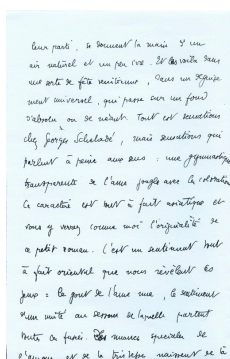 leur parti, se donnent la main d'un
air naturel et un peu ivre. Et les voilà dans
une sorte de fête vénitienne, dans un déguise
ment universel, qui passe sur un fond
d'absolu ou de néant. Tout est sensations
chez Georges Schehadé, mais sensations qui
parlent à peine aux sens : une gymnastique
transparente de l'âme jongle avec la coloration
Ce caractère est tout à fait asiatique et
vous y verrez comme moi l'originalité de
ce petit roman. C'est un sentiment tout
à fait oriental que nous révèlent ces
jeux : Le goût de l'âme nue, le sentiment
d'une unité au dessous de laquelle partent
toutes ces fusées. Des nuances spéciales de
et de la tristesse naissent de là